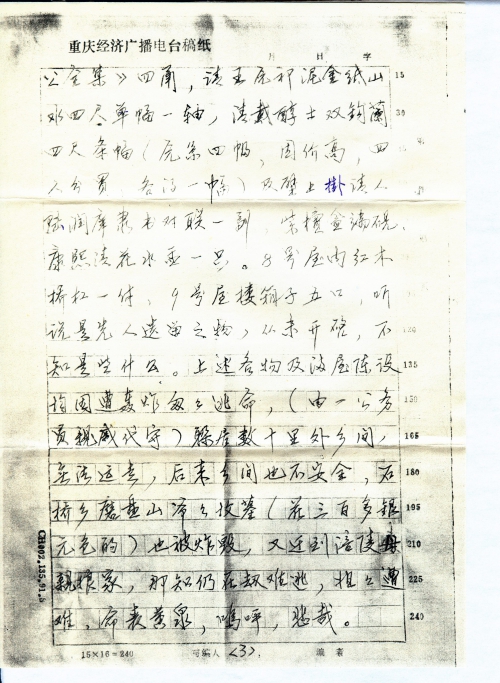 重庆经济广播电台稿纸
月 日 字
公全集》四角，清王宸祁泥金纸山 15
水四尺单幅一轴，清戴醇士双钩兰 30
四尺条幅（原系四幅，因价高，四
人分买，各得一幅）及壁上掛清人
陆润庠隶书对联一副，紫檀盒端砚，
康熙青花水盂一只。8号屋内红木
桥杠一付，9号屋楼箱子五口，听
说是先人遗留之物，从未开启，不 120
知是些什么。上述各物及该屋陈设 135
均因遭轰炸匆匆逃命，（由一公务 150
员现威代守）躲居数十里外乡间， 165
无法运走，后来乡间也不安全，石 180
桥乡磨盘山爷爷坟墓（花三百多银 195
元包的）也被炸毁，又迁到涪陵母 210
亲娘家，那知仍在劫难逃，相继遭 225
难，命丧黄泉，呜呼，悲哉。 240
15×16=240 可编人 〈3〉. 编者
CH002.135.01.a